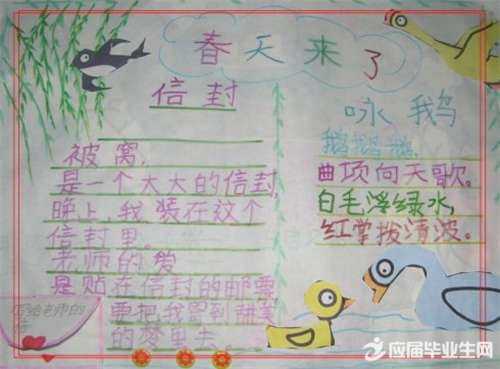 春天来了
信封
被窝,
是一个大大的信封,
晚上,我装在这个
信封里。
老师的爱
是贴在信封的邮票
要把我寄到甜美
的梦里去。
写给老师的
信
咏鹅
鹅鹅鹅,
曲项向天歌。
白毛浮绿水,
红掌拨清波。
应届毕业生网